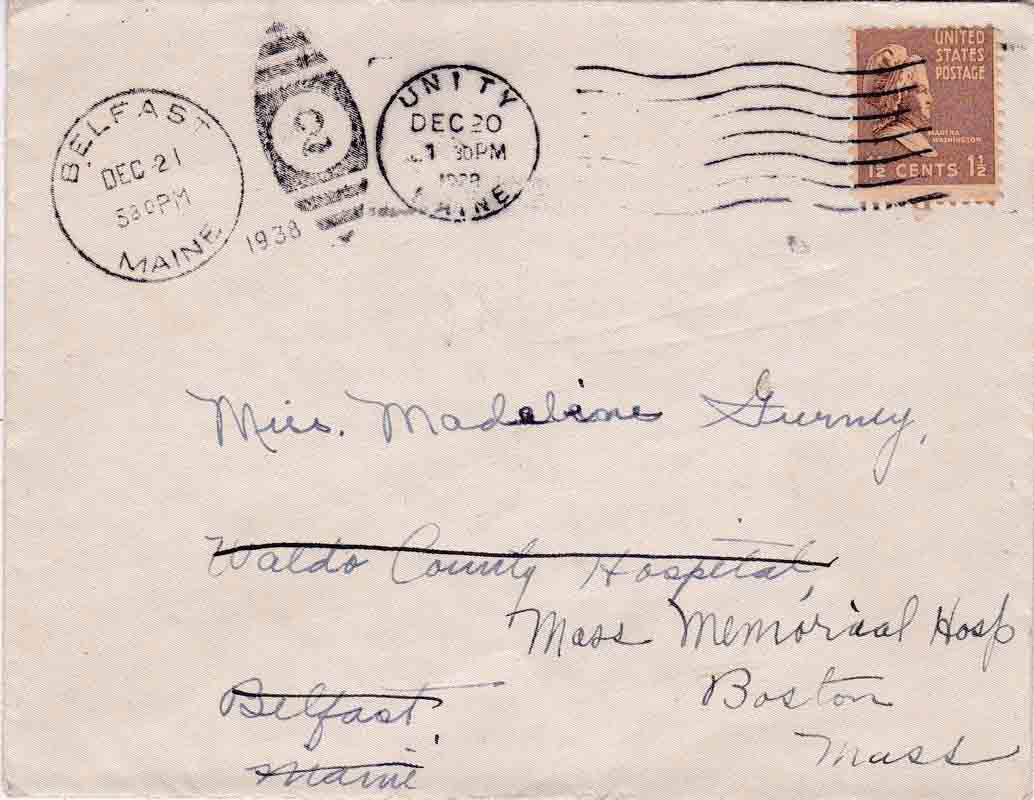 BELFAST
DEC-21
530PM
MAINE.
1938
2
UNITY
DEC 20
30PM
MAINE
UNITED
STATES
POSTAGE
MARTHA
WASHINGTON
1½ CENTS 1½
Miss. Madeline Gurney,
Waldo County Hospital,
Mass Memorial Hosp
Belfast
Boston
Maine
Mass